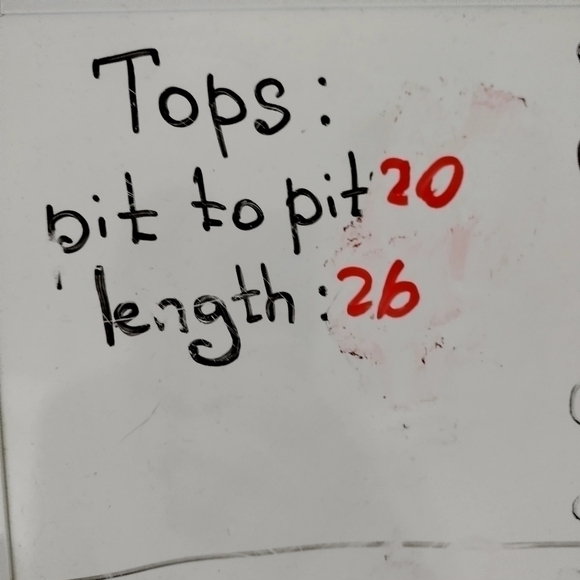 Tops:
pit to pit 20
length: 26